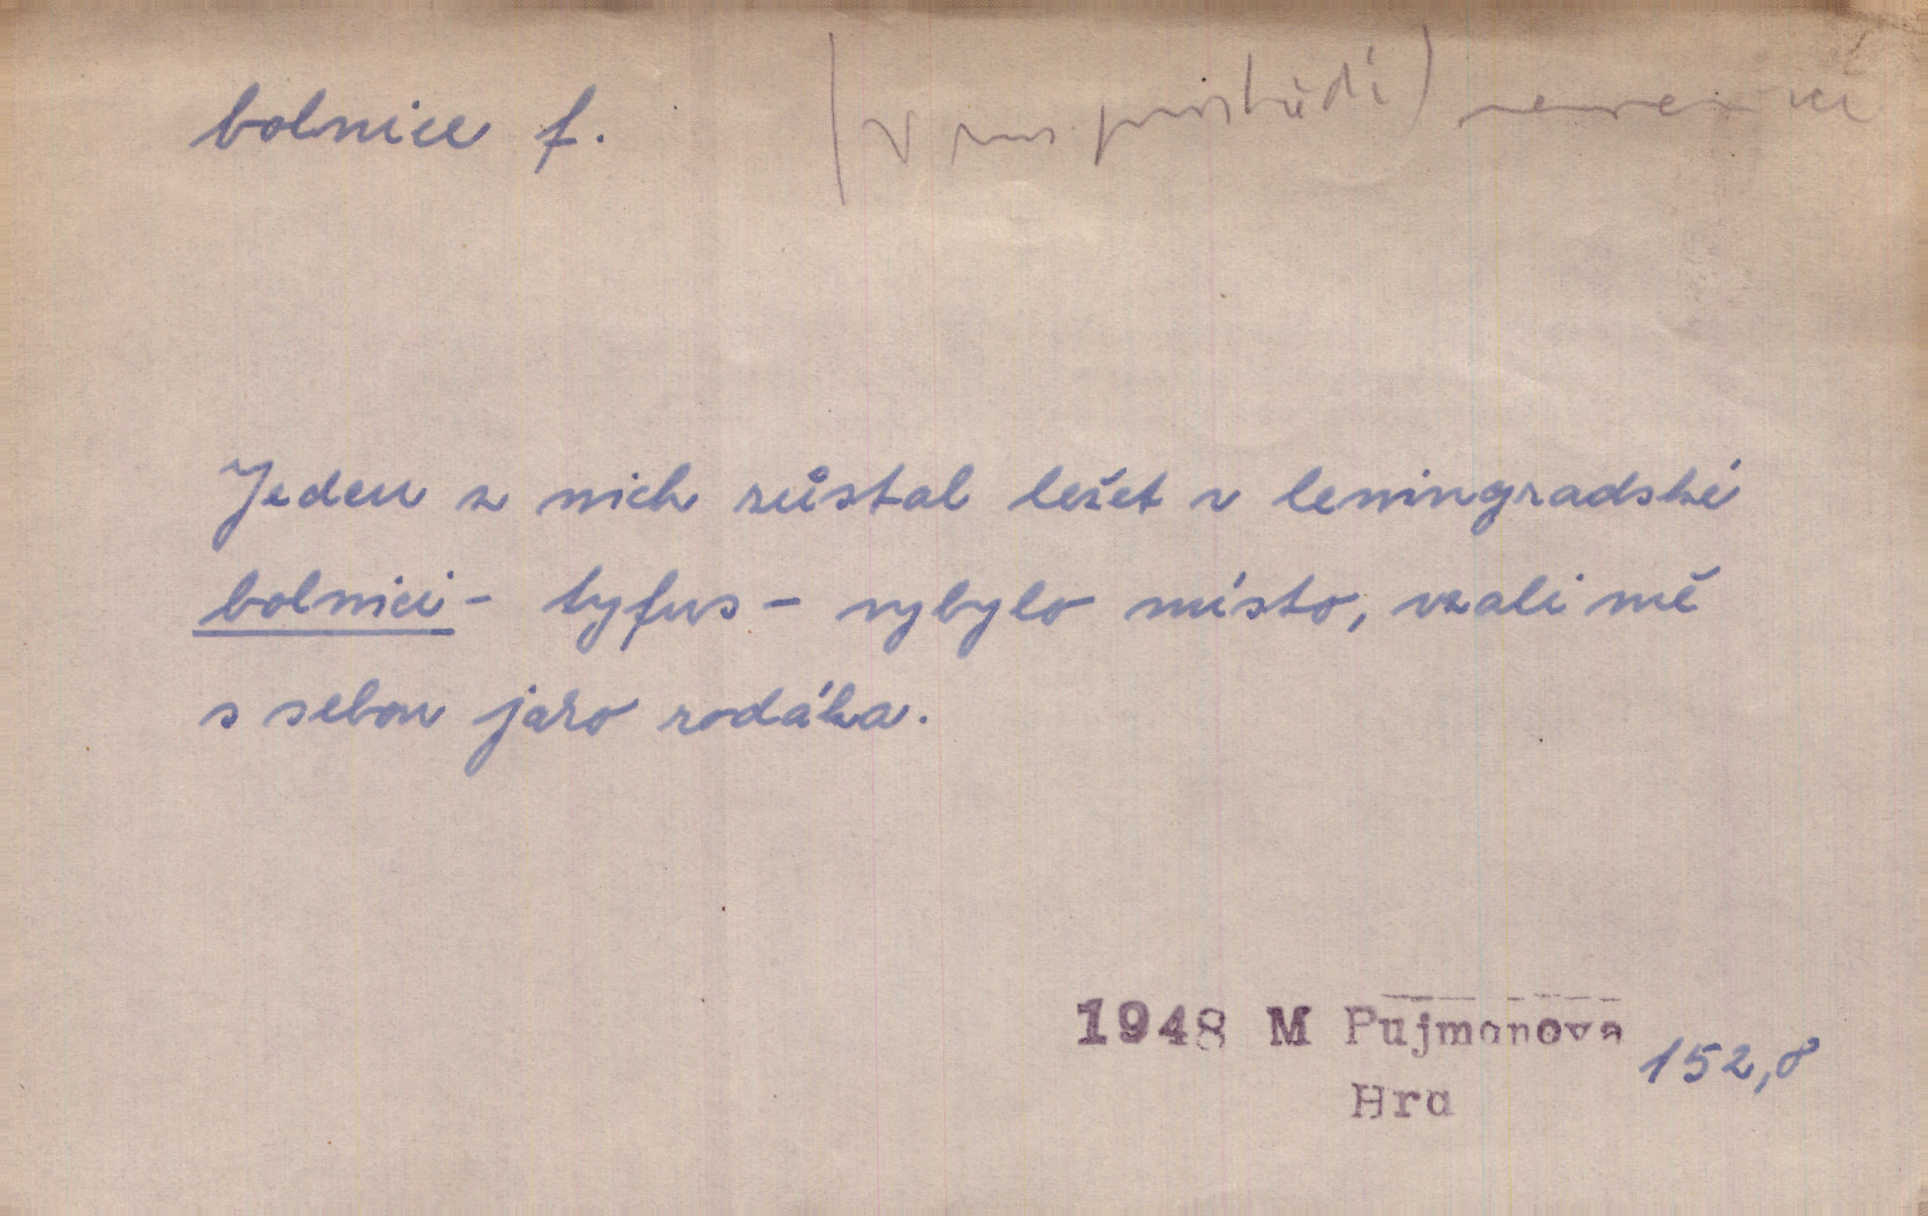 bolnice f. (v rus prostředí) nemocnice
Jeden z nich zůstal ležet v leningradské
bolnici - tyfus - vybylo místo, vzali mě
s sebou jako rodáka.
1948 M Pujmanova 152,8
Hra